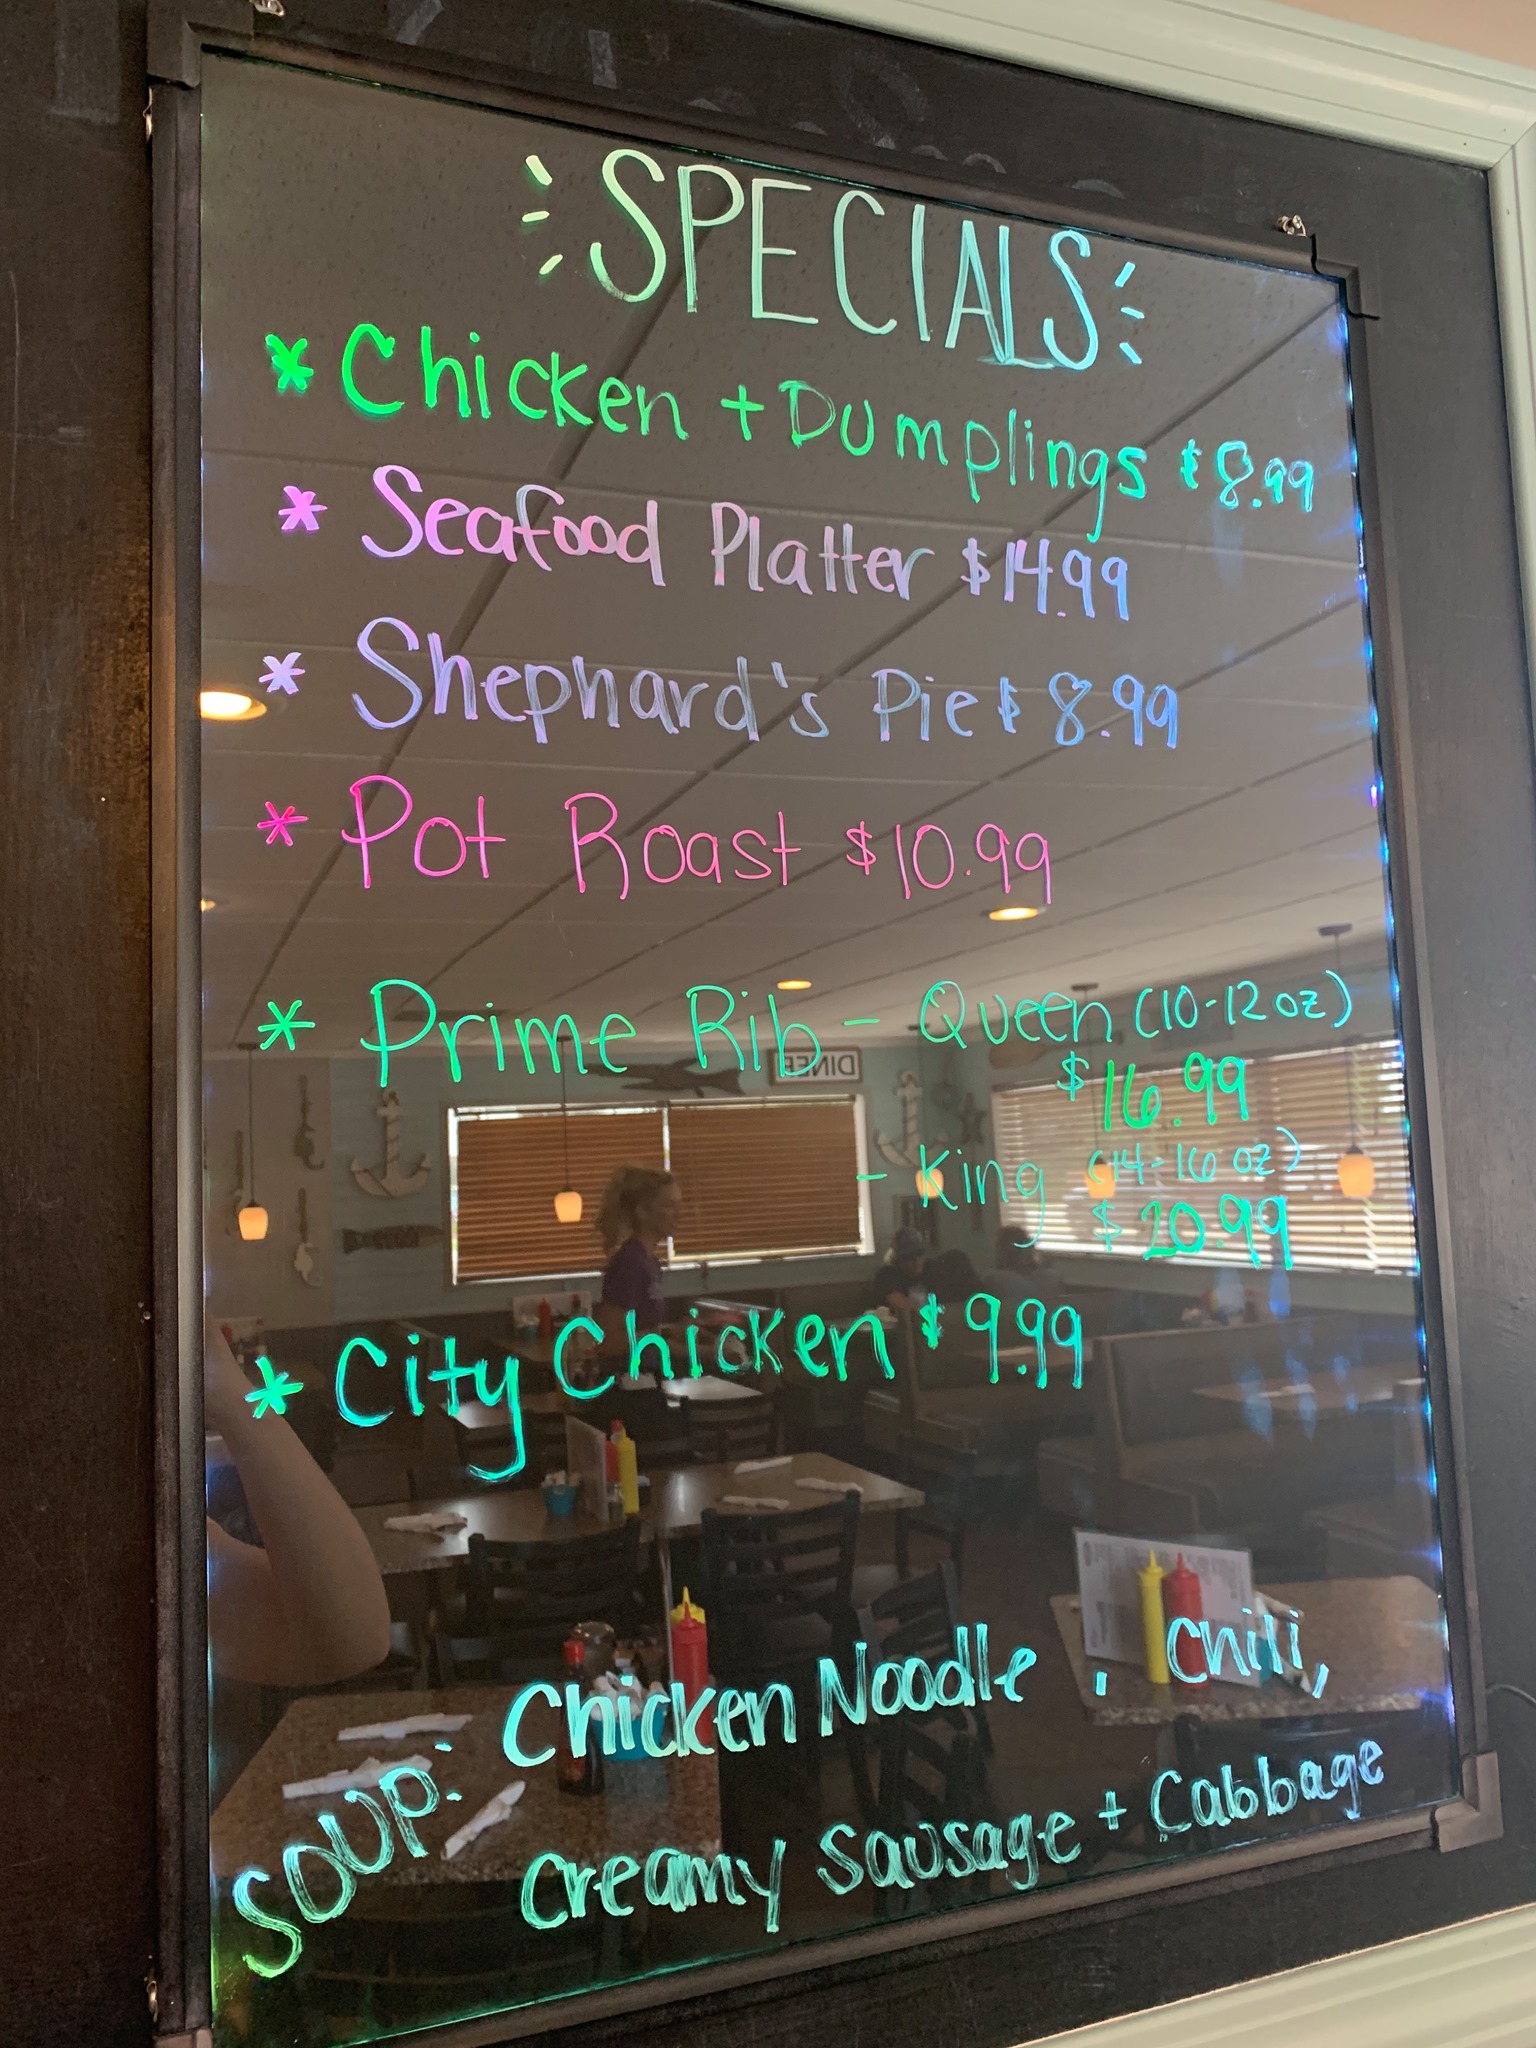 SPECIALS
* Chicken + Dumplings $8.99
* Seafood Platter $14.99
* Shephard's Pie $8.99
* Pot Roast $10.99
* Prime Rib - Queen (10-12oz)
$16.99
- King (14-16 oz)
$20.99
* City Chicken $9.99
SOUP: Chicken Noodle, Chili,
Creamy Sausage + Cabbage
DINER